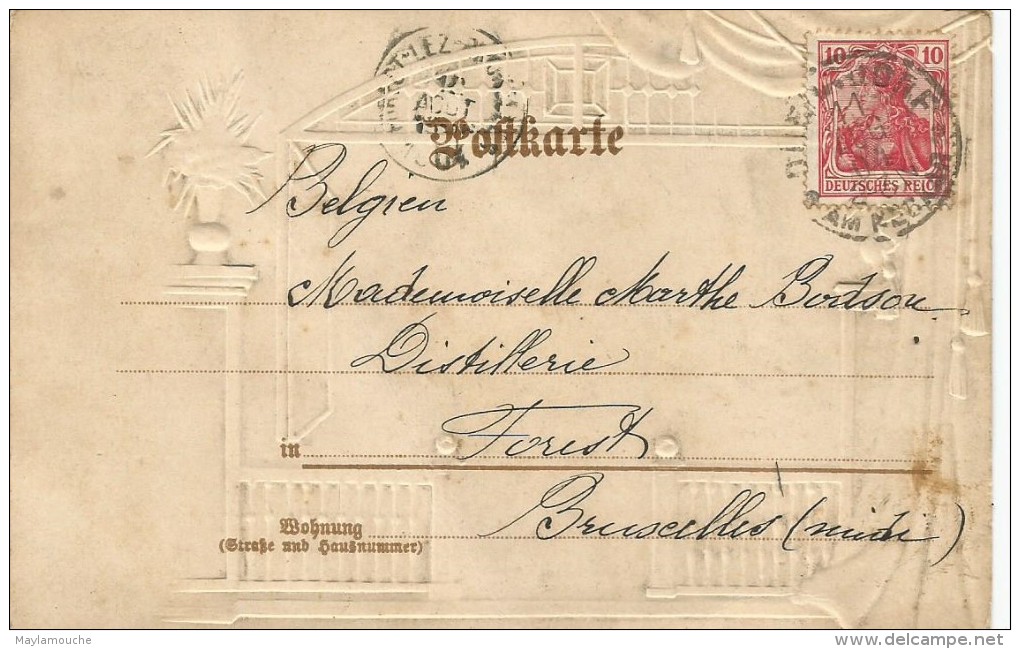 Postkarte
AOUT
10 10
DEUTSCHES REICH
Belgien
Mademoiselle Marthe Bodson
Distillerie
in Forest
Bruxelles (midi)
Wohnung
(Straße und Hausnummer)
Maylamouche
delcampe.net